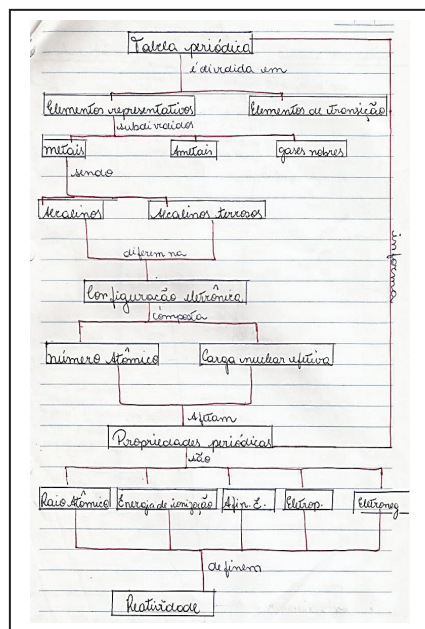 Tabela periódica
é dividida em
Elementos representativos Elementos de transição
subdivididos
metais Ametais gases nobres
sendo
Alcalinos Alcalinos terrosos
diferem na
informa
Configuração eletrônica
composta
número Atômico Carga nuclear efetiva
Afetam
Propriedades periódicas
são
Raio Atômico Energia de ionização Afin. E. Eletrop. Eletroneg
definem
Reatividade